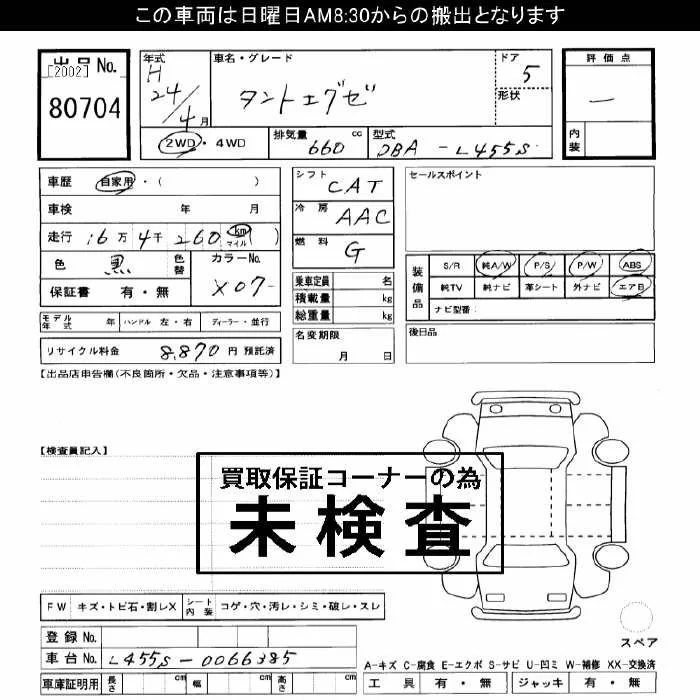 この車両は日曜日AM8:30からの搬出となります
出品No.
[2002]
80704
年式 H 24/4月
車名・グレード タントエグゼ
ドア 5
形状
評価点 —
内装
2WD・4WD
排気量 660 cc
型式 DBA-L455S
車歴 自家用・( )
車検 年 月
走行 16万4千260 km マイル ( )
色 黒 色替
カラーNo. X07-
保証書 有・無
シフト CAT
冷房 AAC
燃料 G
セールスポイント
装備品 S/R 純A/W P/S P/W ABS
純TV 純ナビ 革シート 外ナビ エアB
ナビ型番:
乗車定員 名
積載量 kg
総重量 kg
後日品
モデル年式 年 ハンドル 左・右 ディーラー・並行
名変期限 月 日
リサイクル料金 8,870 円 預託済
【出品店申告欄(不良箇所・欠品・注意事項等)】
【検査員記入】
買取保証コーナーの為
未検査
FW キズ・トビ石・割レX シート内装 コゲ・穴・汚レ・シミ・破レ・スレ
スペア
登録No.
車台No. L455S-0066385
A-キズ C-腐食 E-エクボ S-サビ U-凹ミ W-補修 XX-交換済
車庫証明用 長さ cm 幅 cm 高さ cm
工具 有・無 ジャッキ 有・無